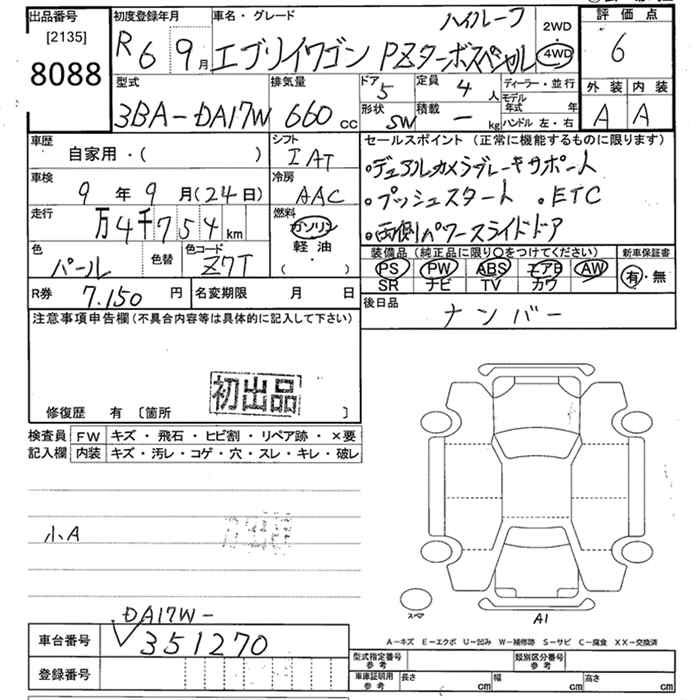 出品番号
[2135]
8088
初度登録年月
R6 9月
車名・グレード
ハイルーフ
エブリイワゴン PZターボスペシャル
2WD
4WD
評価点
6
外装 内装
A A
型式
3BA-DA17W
排気量
660 cc
ドア
5
定員
4 人
形状
SW
積載
— kg
ディーラー・並行
モデル年式 年
ハンドル 左・右
車歴
自家用・( )
シフト
IAT
車検
9年9月(24日)
冷房
AAC
走行
万4千754km
燃料
ガソリン
軽油
( ・ )
色
パール
色替
色コード
Z7T
R券 7.150円
名変期限 月 日
セールスポイント (正常に機能するものに限ります)
・デュアルカメラブレーキサポート
・プッシュスタート ・ETC
・両側パワースライドドア
装備品 (純正品に限り○をつけてください)
PS PW ABS エアB AW
SR ナビ TV カワ
新車保証書
有・無
後日品
ナンバー
注意事項申告欄(不具合内容等は具体的に記入して下さい)
初出品
修復歴 有 〔箇所 〕
検査員 FW キズ・飛石・ヒビ割・リペア跡・×要
記入欄 内装 キズ・汚レ・コゲ・穴・スレ・キレ・破レ
小A
スペア
A1
A-キズ E-エクボ U-凹み W-補修跡 S-サビ C-腐食 XX-交換済
DA17W-
車台番号 351270
登録番号
型式指定番号 参考
類別区分番号 参考
車庫証明用 参考
長さ cm 幅 cm 高さ cm